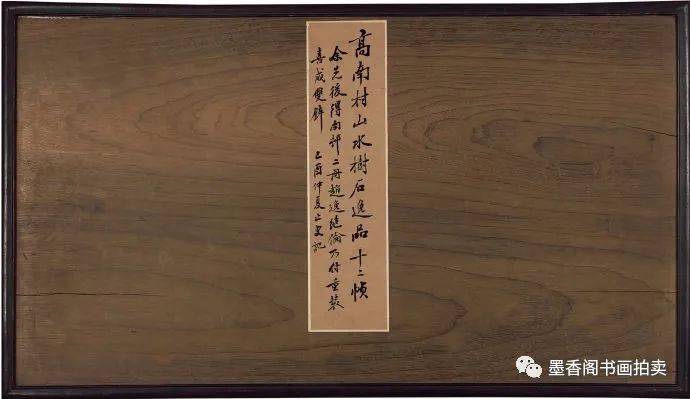 高南村山水樹石逸品十二幀
余先後得南邨二冊超逸絕倫乃付重裝
喜成雙錦 己酉仲夏止叟記
墨香阁书画拍卖